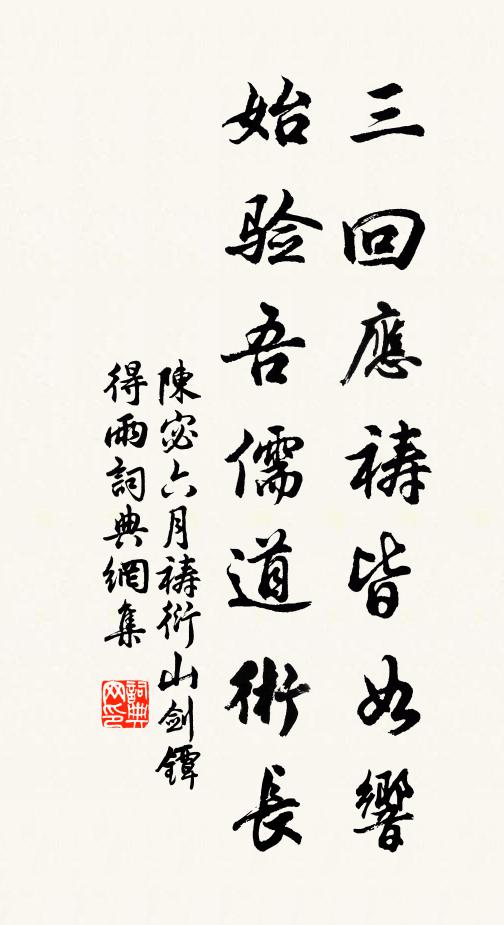 三回應祷皆如響
始验吾儒道術長
陳宓六月祷衍山剑鐔
得雨詞典網集
詞典网印